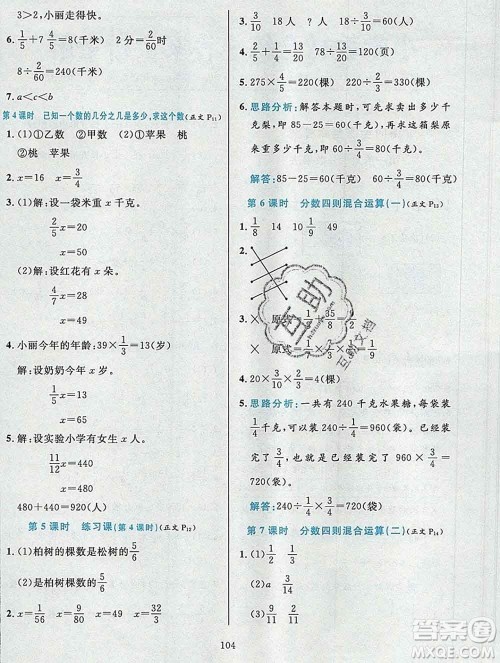 3＞2,小丽走得快。
6. 1/5÷7 4/5=8(千米) 2分=2/60(时)
8÷2/60=240(千米)
7. a＜c＜b
第4课时 已知一个数的几分之几是多少,求这个数(正文P11)
1. (1)①乙数 ②甲数 (2)①苹果 桃
②桃 苹果
2. x=16 x=3/4
3. (1)解:设一袋米重x千克。
3/4x=45
x=60
(2)解:设红花有x朵。
3/4x=60
x=80
4. 小丽今年的年龄:39×1/3=13(岁)
解:设奶奶今年x岁。
1/5x=13
x=65
5. 解:设实验小学有女生x人。
11/12x=440
x=480
480+440=920(人)
第5课时 练习课(第4课时)(正文P12)
1. (1)柏树的棵数是松树的5/6
(2)柏树的棵数 松树的棵数×5/6
2. x=1/56 x=9/80 x=49 x=32/3
3. 3/10 18 人 ? 18÷3/10=60(人)
4. 2/20÷1/15=3/2(时)
5. 275×4/5=220(棵) 220÷2/3=330(棵)
6. 思路分析:解答本题时,可先求出卖出多少千
克梨,即85-25=60(千克),再求出这箱梨原
来有多少千克,即60÷3/4=80(千克)。
解答:85-25=60(千克) 60÷3/4=80(千克)
第6课时 分数四则混合运算(一)(正文P13)
1. 1/8 14 10 1/4 29
2.
3. × 原式
× 原式
4. 20×3/4×1/5=3(人)
5. 思路分析:一共有240千克水果糖,每袋装
1/4千克,则一共可以装240÷1/4=960(袋),已经
装完了3/4,也就是装完了960×3/4=720(袋)。
解答:240÷1/4×3/4=720(袋)
第7课时 分数四则混合运算(二)(正文P14)
1. (1)
(2)a 3/10
(3)9/10 9/11
104
互助
互助文档
答案圈